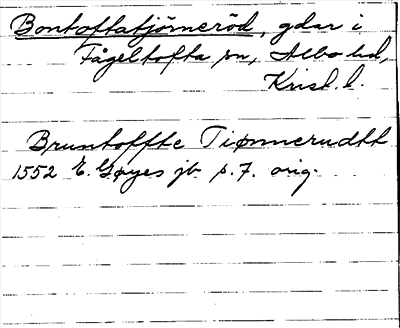 Bontoftatjörneröd, gdar i
Fågeltofta sn, Albo hd,
Krist. l.
Bruntoffte Tiønnerudtt
1552 E. Gøyes jb p.7. orig.